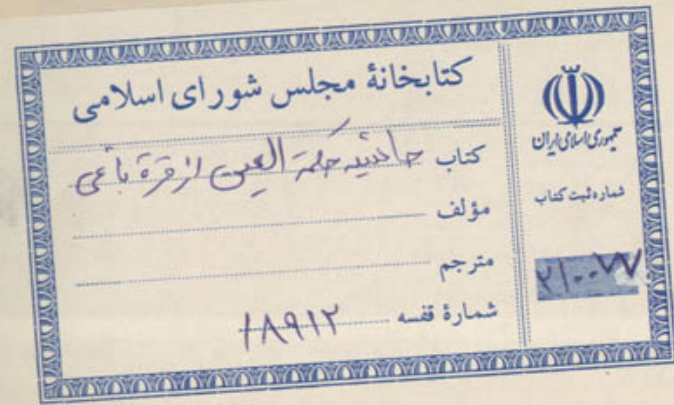 کتابخانهٔ مجلس شورای اسلامی
کتاب حاشیه حکمة العین از قرة باغی
مؤلف
مترجم
شمارهٔ قفسه ۱۸۹۱۲
جمهوری اسلامی ایران
شماره ثبت کتاب
۲۱۰۰۷۷